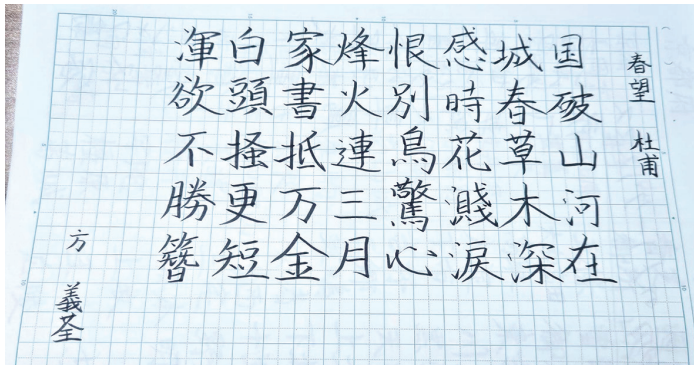 春望 杜甫
国破山河在
城春草木深
感時花濺淚
恨別鳥驚心
烽火連三月
家書抵万金
白頭搔更短
渾欲不勝簪
方 義荃